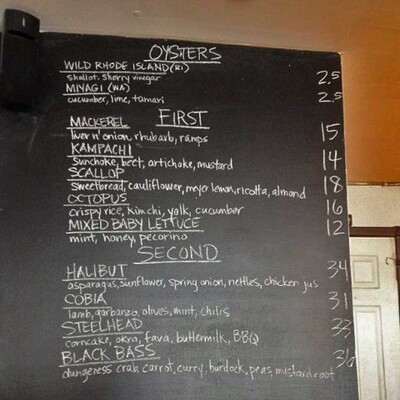 OYSTERS
WILD RHODE ISLAND (RI) 2.5
shallot, sherry vinegar
MIYAGI (WA) 2.5
cucumber, lime, tamari
FIRST
MACKEREL 15
liver n' onion, rhubarb, ramps
KAMPACHI 14
sunchoke, beet, artichoke, mustard
SCALLOP 18
sweetbread, cauliflower, meyer lemon, ricotta, almond
OCTOPUS 16
crispy rice, kimchi, yolk, cucumber
MIXED BABY LETTUCE 12
mint, honey, pecorino
SECOND
HALIBUT 34
asparagus, sunflower, spring onion, nettles, chicken jus
COBIA 31
lamb, garbanzo, olives, mint, chilis
STEELHEAD 33
corncake, okra, fava, buttermilk, BBQ
BLACK BASS 36
dungeness crab, carrot, curry, burdock, peas, mustard root